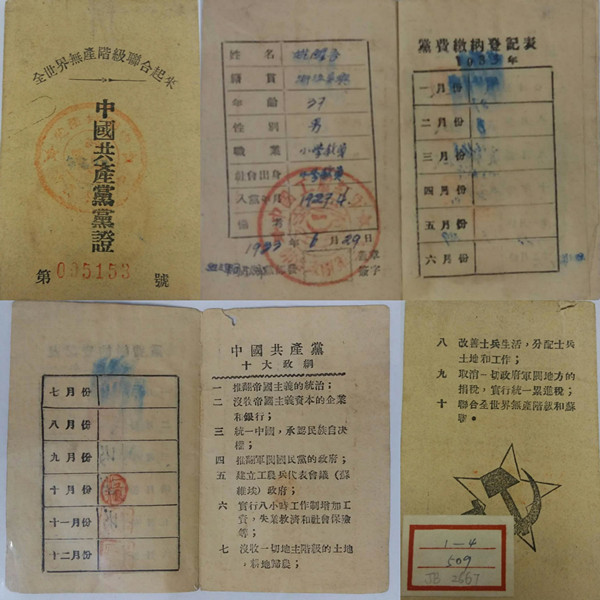 全世界無產階級聯合起來
中國共產黨黨證
第 005153 號
姓名
籍貫
年齡 27
性別 男
職業 小学教員
社會出身 小学教員
入黨年月 1927.4.
備考
1933年6月29日
蓋章
簽字
黨費繳納登記表
1933年
一月份
二月份
三月份
四月份
五月份
六月份
七月份
八月份
九月份
十月份
十一月份
十二月份
中國共產黨
十大政綱
一 推翻帝國主義的統治;
二 沒收帝國主義資本的企業
和銀行;
三 統一中國,承認民族自決
權;
四 推翻軍閥國民黨的政府;
五 建立工農兵代表會議(蘇
維埃)政府;
六 實行八小時工作制增加工
資,失業救濟和社會保險
等;
七 沒收一切地主階級的土地
,耕地歸農;
八 改善士兵生活,分配士兵
土地和工作;
九 取消一切政府軍閥地方的
捐稅,實行統一累進稅;
十 聯合全世界無產階級和蘇
聯。
1-4
509
JB 2667